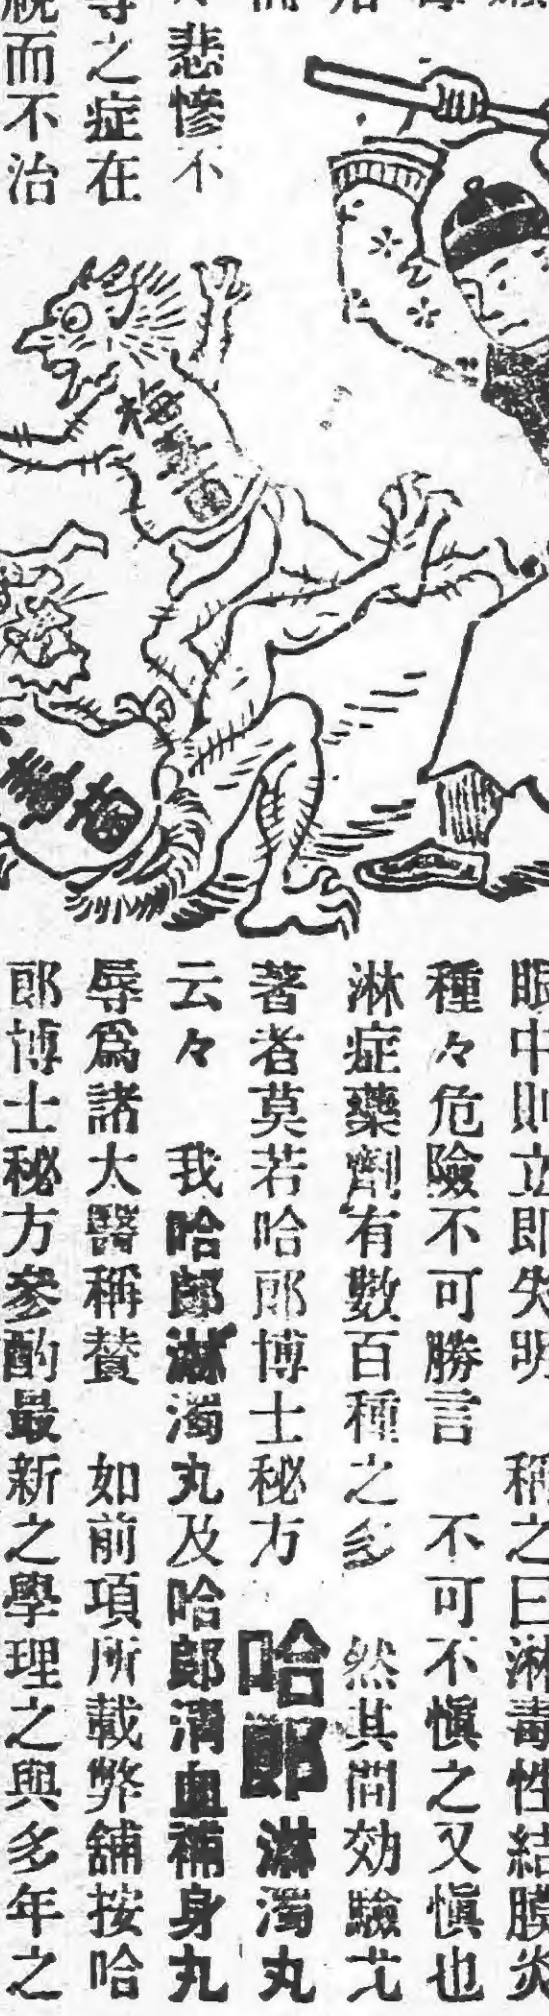 悲慘不
之症在
而不治
梅毒菌
毒菌
眼中則立即失明　稱之曰淋毒性結膜炎
種々危險不可勝言　不可不愼之又愼也
淋症藥劑有數百種之多　然其間効驗尤
著者莫若哈郎博士秘方　哈郎淋濁丸
云々　我哈郎淋濁丸及哈郎淸血補身丸
辱爲諸大醫稱贊　如前項所載弊舖按哈
郎博士秘方參酌最新之學理之與多年之